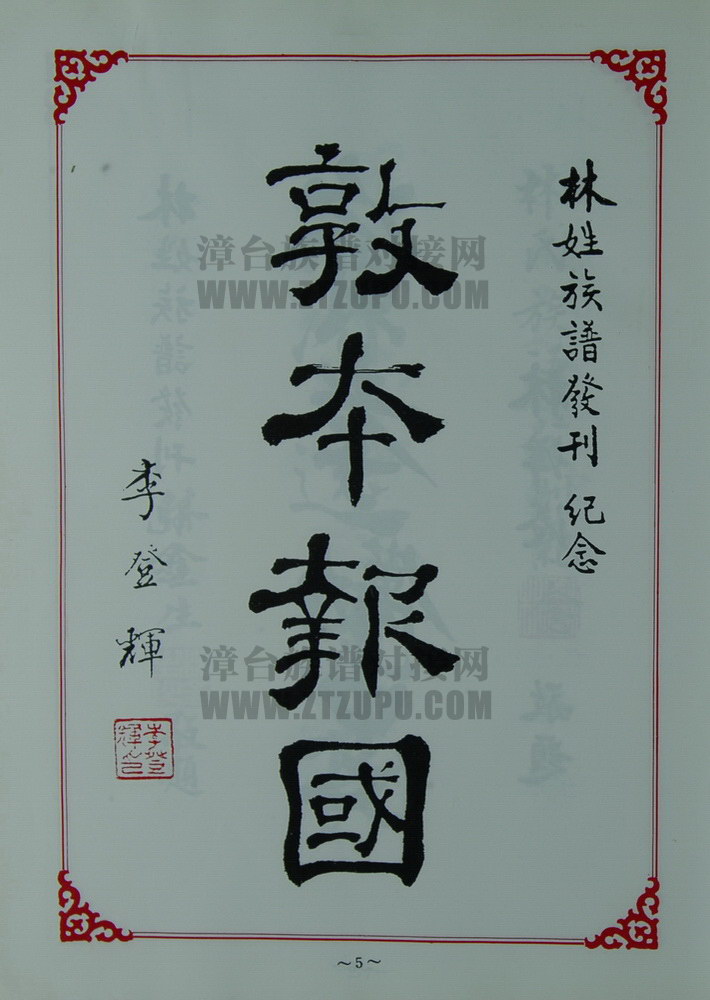 林姓族譜發刊 紀念
敦本報國
李登輝
漳台族谱对接网
WWW.ZTZUPU.COM
漳台族谱对接网
WWW.ZTZUPU.COM
～5～